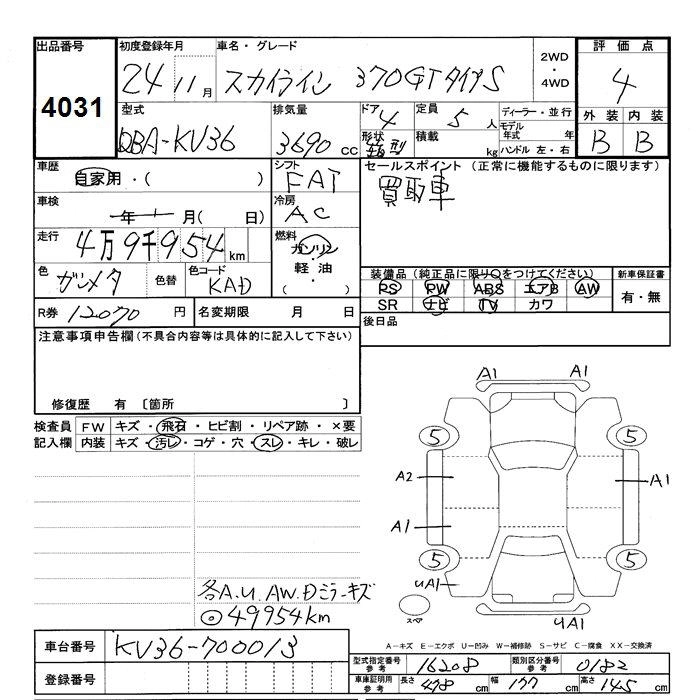 出品番号 初度登録年月 車名・グレード 2WD・4WD 評価点
4031 24 11月 スカイライン 370GTタイプS 4
型式 排気量 ドア 4 定員 5人 ディーラー・並行 外装 内装
DBA-KV36 3690cc 形状 箱型 積載 kg モデル年式 年 ハンドル 左・右 B B
車歴 自家用・( ) シフト FAT セールスポイント (正常に機能するものに限ります)
車検 年 月( 日) 冷房 AC 買取車
走行 4万9千954km 燃料 ガソリン・軽油・( )
色 ガンメタ 色替 色コード KAD 装備品(純正品に限り○をつけてください) 新車保証書
PS PW ABS エアB AW 有・無
R券 12070円 名変期限 月 日 SR ナビ TV カワ
注意事項申告欄(不具合内容等は具体的に記入して下さい) 後日品
修復歴 有 〔箇所 〕
検査員 FW キズ・飛石・ヒビ割・リペア跡・×要
記入欄 内装 キズ・汚レ・コゲ・穴・スレ・キレ・破レ
A1 A1
5 5
A2 A1
A1
5 5
uA1 スペア uA1
各A.U.AW.Dミラーキズ
◎49954km
A-キズ E-エクボ U-凹み W-補修跡 S-サビ C-腐食 XX-交換済
車台番号 KV36-700013
型式指定番号 参考 16208 類別区分番号 参考 0182
登録番号 車庫証明用 参考 長さ 478cm 幅 177cm 高さ 145cm